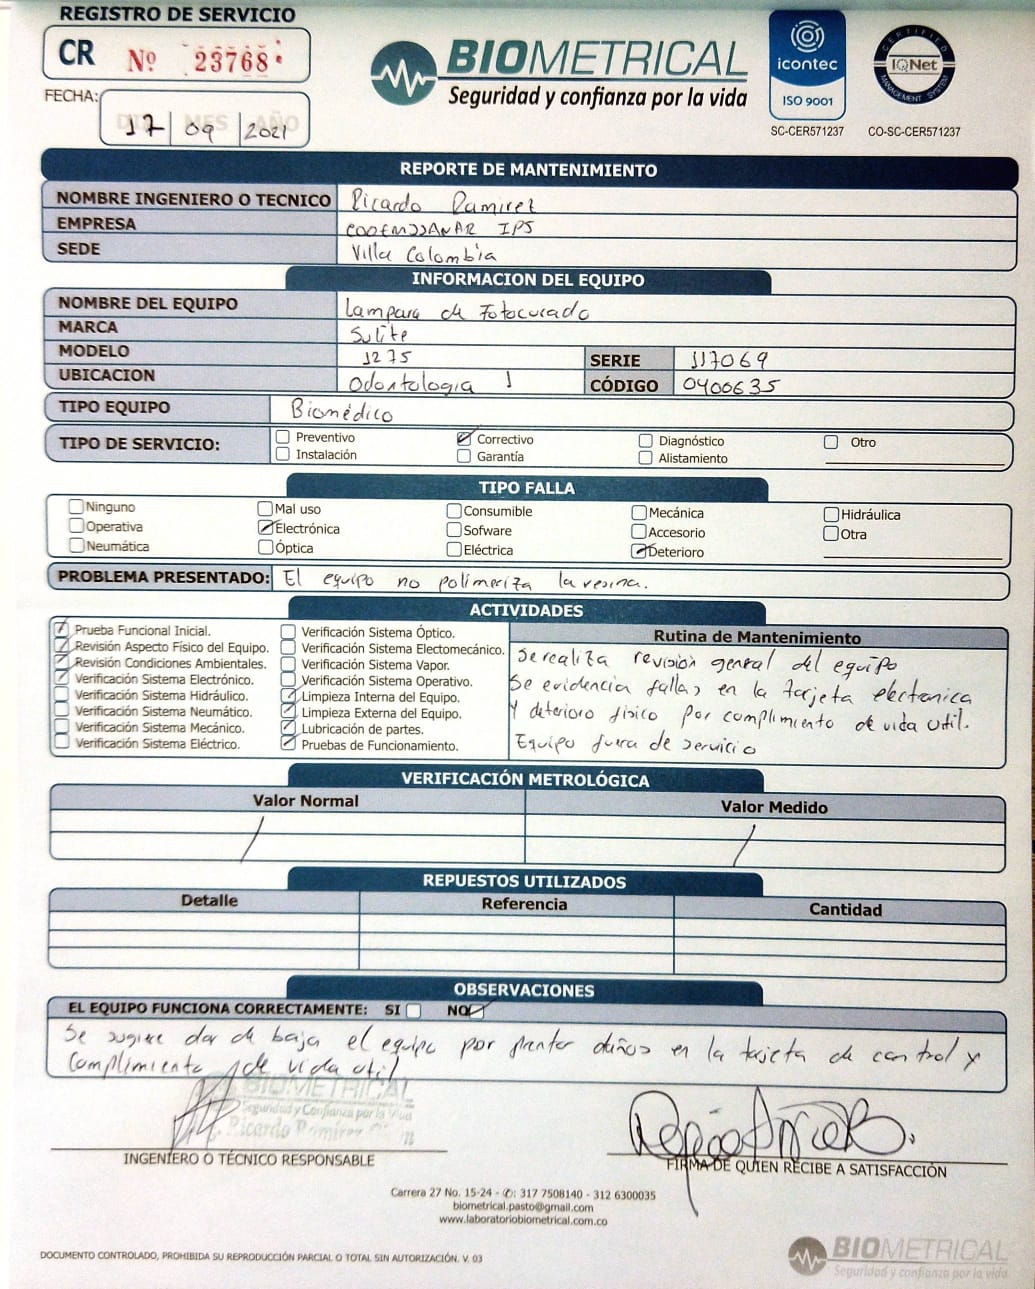 REGISTRO DE SERVICIO
CR Nº 23768
BIOMETRICAL
Seguridad y confianza por la vida
icontec
ISO 9001
SC-CER571237
CERTIFIED
IQNet
MANAGEMENT SYSTEM
CO-SC-CER571237
FECHA: DIA MES AÑO
17 09 2021
REPORTE DE MANTENIMIENTO
NOMBRE INGENIERO O TECNICO Ricardo Ramirez
EMPRESA IPS
SEDE Villa Colombia
INFORMACION DEL EQUIPO
NOMBRE DEL EQUIPO Lampara de Fotocurado
MARCA Sulite
MODELO 1275 SERIE 117069
UBICACION Odontologia 1 CÓDIGO 0400635
TIPO EQUIPO Biomédico
TIPO DE SERVICIO: Preventivo Correctivo Diagnóstico Otro
Instalación Garantía Alistamiento
TIPO FALLA
Ninguno Mal uso Consumible Mecánica Hidráulica
Operativa Electrónica Sofware Accesorio Otra
Neumática Óptica Eléctrica Deterioro
PROBLEMA PRESENTADO: El equipo no polimeriza la resina.
ACTIVIDADES
Prueba Funcional Inicial.
Revisión Aspecto Físico del Equipo.
Revisión Condiciones Ambientales.
Verificación Sistema Electrónico.
Verificación Sistema Hidráulico.
Verificación Sistema Neumático.
Verificación Sistema Mecánico.
Verificación Sistema Eléctrico.
Verificación Sistema Óptico.
Verificación Sistema Electomecánico.
Verificación Sistema Vapor.
Verificación Sistema Operativo.
Limpieza Interna del Equipo.
Limpieza Externa del Equipo.
Lubricación de partes.
Pruebas de Funcionamiento.
Rutina de Mantenimiento
Se realiza revisión general del equipo
Se evidencia fallas en la tarjeta electronica
Y deterioro fisico por complimiento de vida util.
Equipo fuera de servicio
VERIFICACIÓN METROLÓGICA
Valor Normal Valor Medido
/ /
REPUESTOS UTILIZADOS
Detalle Referencia Cantidad
OBSERVACIONES
EL EQUIPO FUNCIONA CORRECTAMENTE: SI NO
Se sugiere dar de baja el equipo por daños en la tarjeta de control y
Complimiento de vida util
BIOMETRICAL
Seguridad y Confianza por la Vida
Ricardo Ramirez
INGENIERO O TÉCNICO RESPONSABLE
FIRMA DE QUIEN RECIBE A SATISFACCIÓN
Carrera 27 No. 15-24 - ✆: 317 7508140 - 312 6300035
biometrical.pasto@gmail.com
www.laboratoriobiometrical.com.co
DOCUMENTO CONTROLADO, PROHIBIDA SU REPRODUCCIÓN PARCIAL O TOTAL SIN AUTORIZACIÓN. V. 03
BIOMETRICAL
Seguridad y confianza por la vida